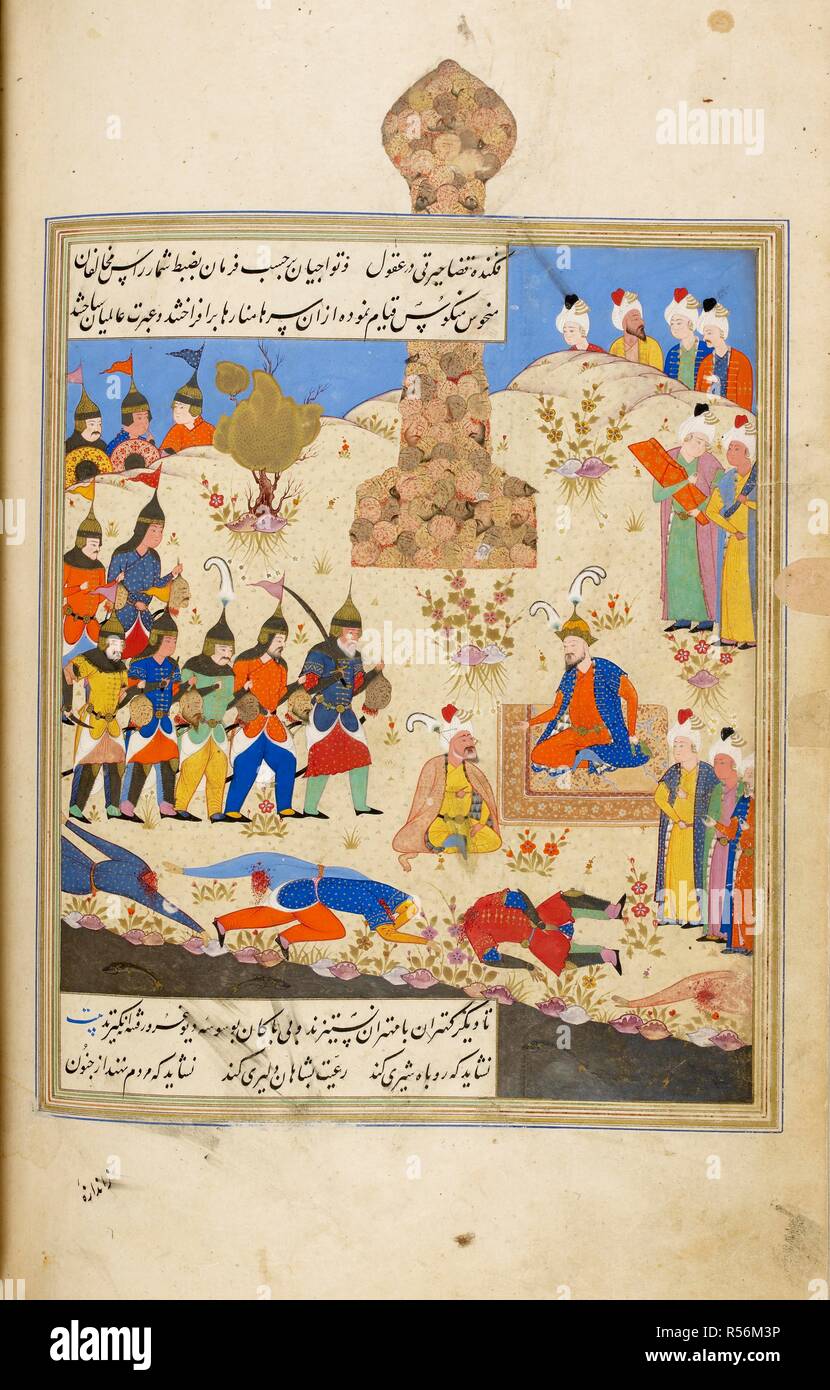 فکنده قضا حیرتی در عقول و تواجیان برحسب فرمان بضبط شمار راس مخالفان
منحوس منکوس قیام نموده از ان سرها منارها برافراختند و عبرت عالمیان ساختند
تا دیگر کهتران با مهتران نستیزند و بی باکان بوسوسه دیو غرور فتنه نینگیزند بیت
نشاید که روباه شیری کند رعیت بشاهان دلیری کند نشاید که مردم نهند از جنون
alamy
alamy
Image ID: R56M3P
www.alamy.com